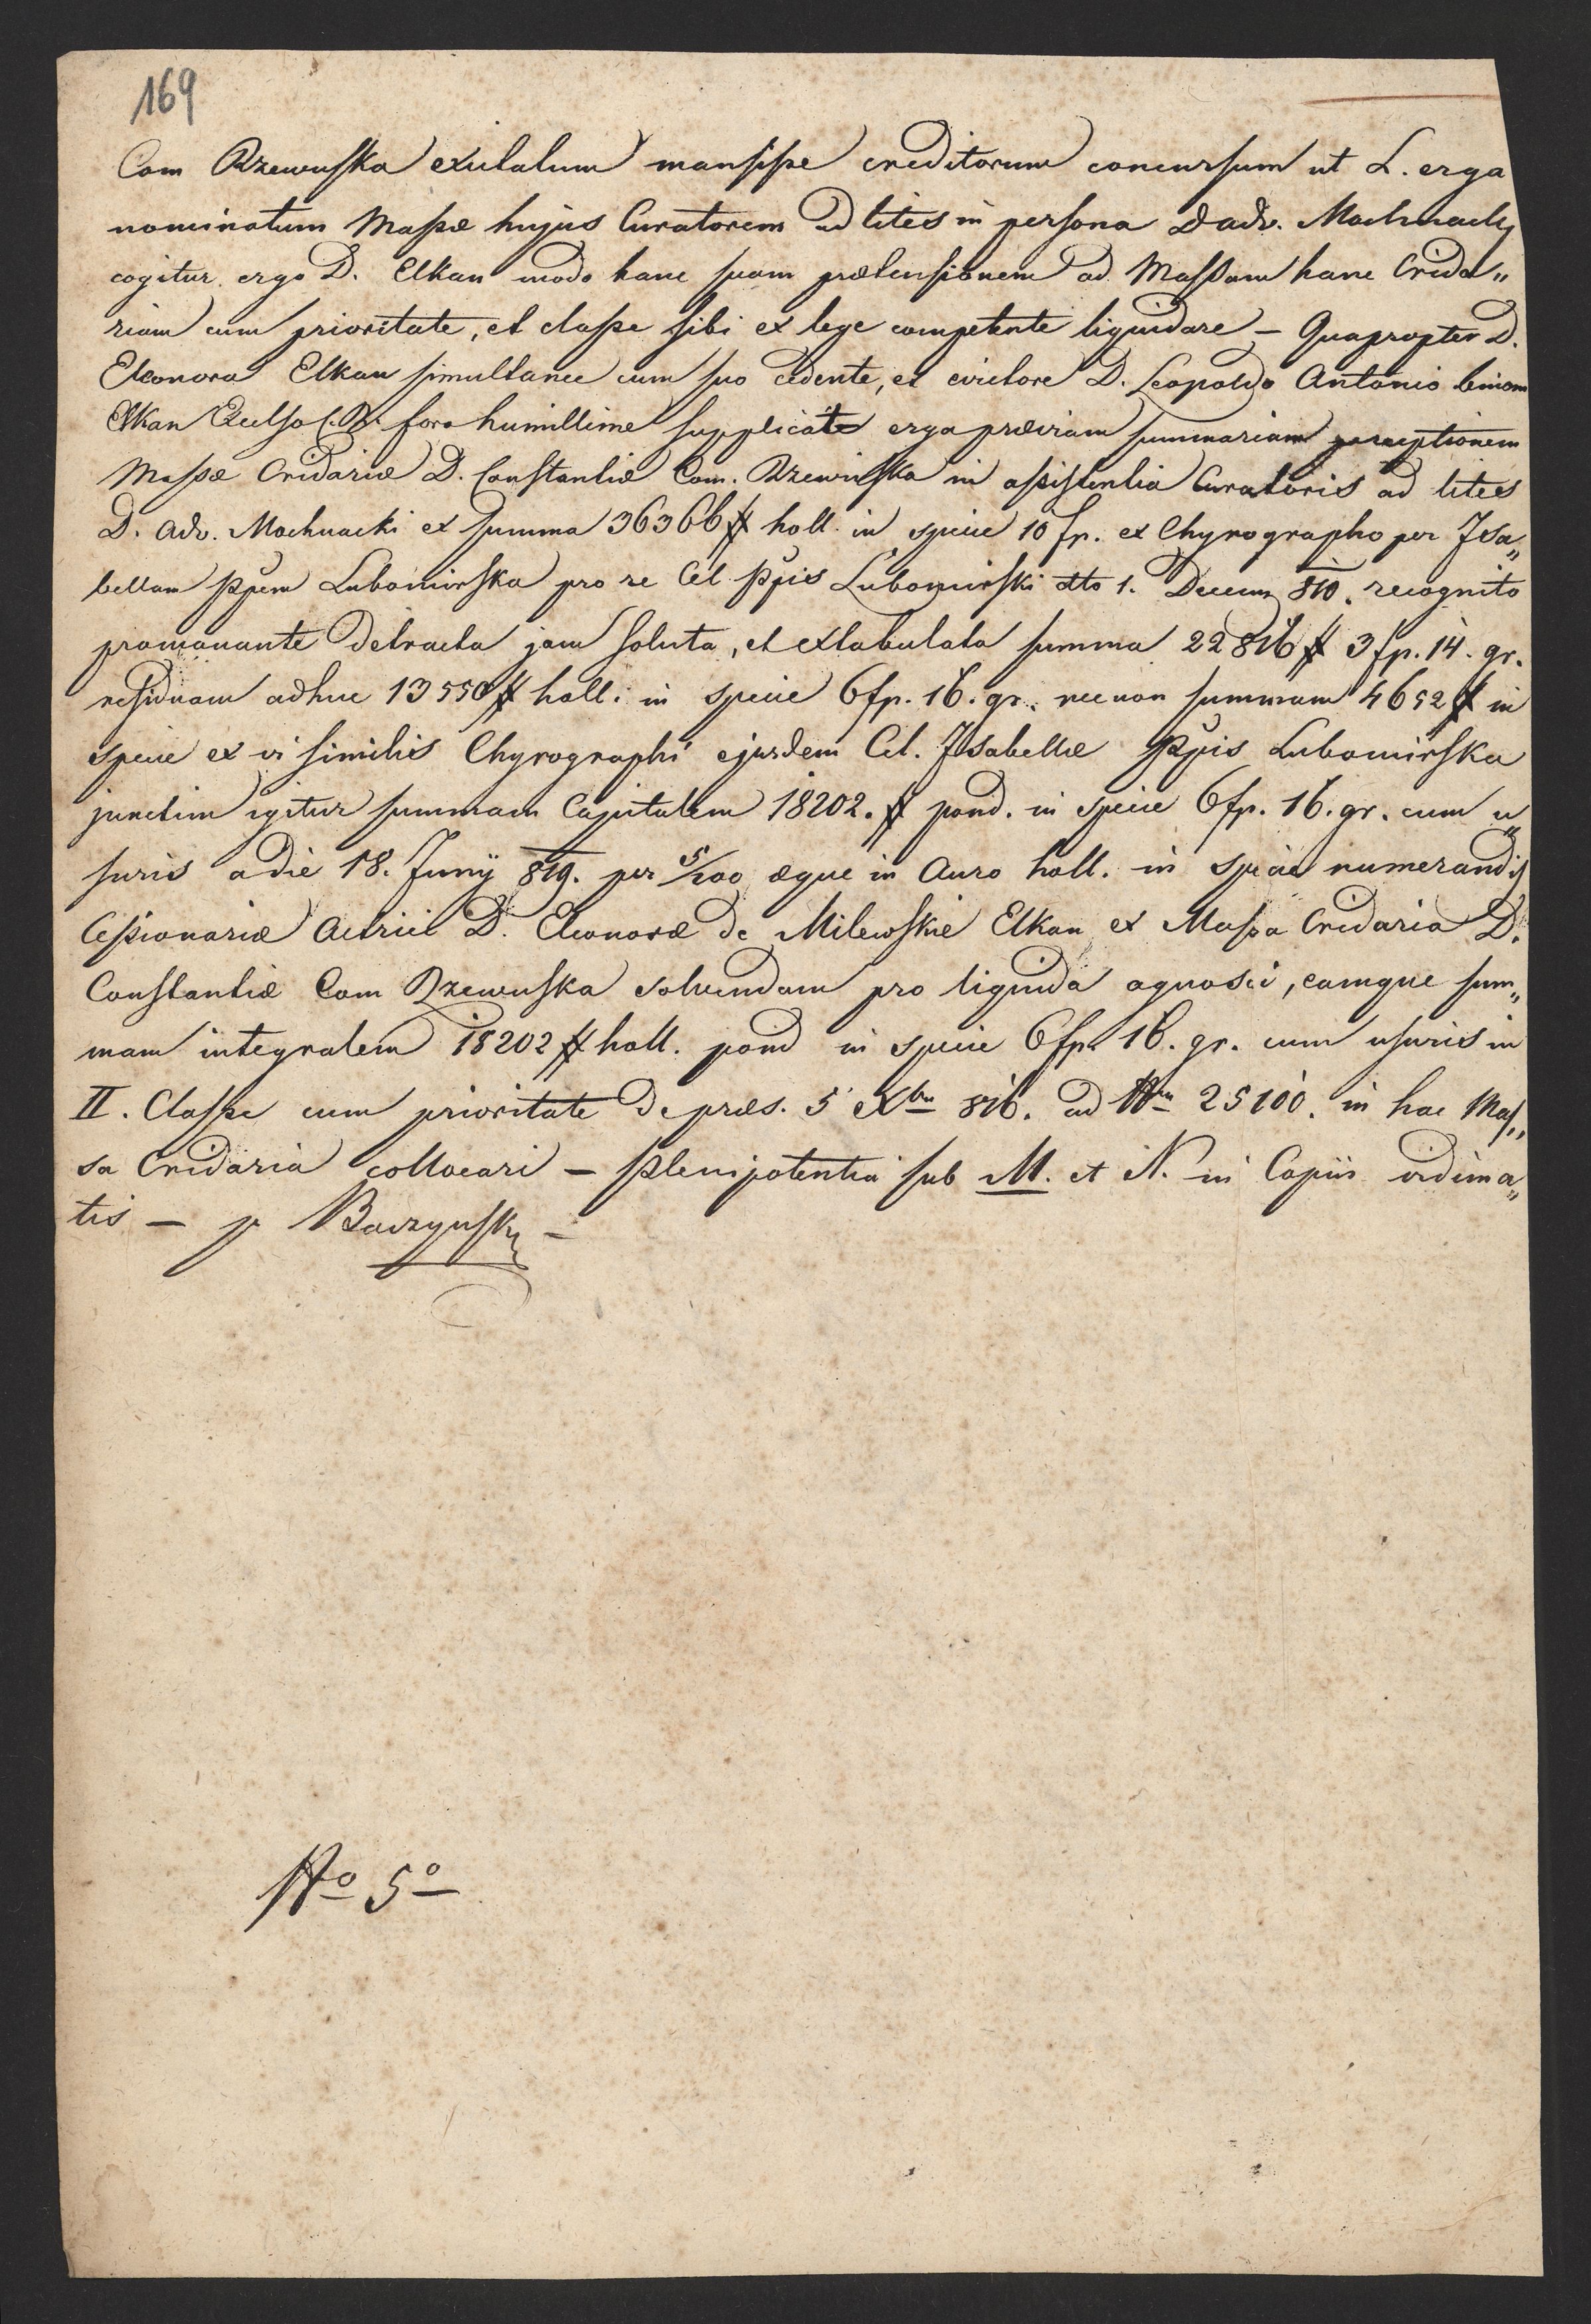 169
Com Rzewuska exicitatum mansisse creditorum concursum ut L. erga
nominatum Massæ hujus Curatorem ad lites in persona D adv. Mochnacky
cogitur ergo D. Elkan modo hanc suam prætensionem ad Massam hanc Crida„
riam cum prioritate, et classe sibi ex lege competente liquidare – Quapropter D.
Eleonora Elkan simultanee cum suo cedente, et evictore D. Leopoldo Antonio binom
Elkan Excelso C. R. foro humillime supplicat erga præviam summariam perceptionem
Massæ Cridariæ D. Constantiæ Com. Rzewuska in assistentia Curatoris ad lites
D. Adv. Mochnacki ex summa 36366 # holl. in specie 10 fp. ex Chyrographo per Isa„
bellam Ppem Lubomirska pro re Cel. Ppis Lubomirski dto 1. Decem 810. recognito
promanante detracta jam soluta, et extabulata summa 22816 # 3 fp. 14. gr.
residuam adhuc 13550 # holl: in specie 6 fp. 16. gr. necnon summam 4652 # in
specie ex vi similis Chyrographi ejusdem Cel. Isabellæ Ppis Lubomirska
junctim igitur summam Capitalem 18202. # pond. in specie 6 fp. 16. gr. cum u„
suris a die 18. Junÿ 819. per 5/100 æque in Auro holl. in specie numerandis
Cessionariæ Actrici D. Eleonoræ de Milewskie Elkan ex Massa Cridaria D.
Constantiæ Com Rzewuska solvendam pro liquida agnosci, eamque sum„
mam integralem 18202 # holl. pond in specie 6 fp. 16. gr. cum usuris in
II. Classe cum prioritate de præs. 5 Xbr 816. ad Nrm 25100. in hac Mas„
sa Cridaria collocari – Plenipotentia sub M. et N. in Copiis vidima„
tis – p Baczynsky –
No 5o